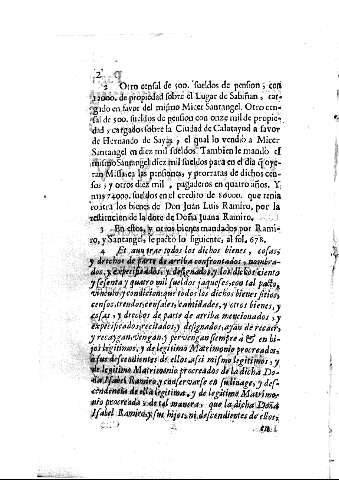 2
2 Otro censal de 500. sueldos de pension, con
12000. de propiedad sobre el Lugar de Sabiñan, car-
gado en favor del mismo Micer Santangel. Otro cen-
sal de 500. sueldos de pension con onze mil de propie-
dad, cargados sobre la Ciudad de Calatayud a favor
de Hernando de Sayas, el qual lo vendiò a Micer
Santangel en diez mil sueldos. Tambien le mandò el
mismo Santangel diez mil sueldos para en el dia q̃ oye-
ran Missa: las pensiones, y prorratas de dichos cen-
sos, y otros diez mil, pagaderos en quatro años. Y
mas 74000. sueldos en el credito de 86000. que tenia
contra los bienes de Don Juan Luis Ramiro, por la
restitucion de la dote de Doña Juana Ramiro.
3 En estos, y otros bienes mandados por Rami-
ro, y Santangel, se pactò lo siguiente, al fol. 678.
4 Et aun trae todos los dichos bienes, cosas,
y drechos de parte de arriba confrontados, nombra-
dos, y especificados, y designados, y los dichos ciento
y sesenta y quatro mil sueldos jaqueses, con tal pacto,
vinculo, y condicion: que todos los dichos bienes sitios,
censos, treudos, censales, cantidades, y otros bienes, y
cosas, y drechos de parte de arriba mencionados, y
especificados, recitados, y designados, ayan de recaer,
y recaygan, vengan, y pervengan siempre a & en hi-
jos legitimos, y de legitimo Matrimonio procreados,
a sus descendientes de ellos, assi mismo legitimos, y
de legitimo Matrimonio procreados de la dicha Do-
ña Isabel Ramiro, y conservarse en su linage, y des-
cendencia de ella legitima, y de legitimo Matrimo-
nio procreada; de tal manera, que la dicha Doña
Isabel Ramiro, y sus hijos, ni descendientes de ellos,